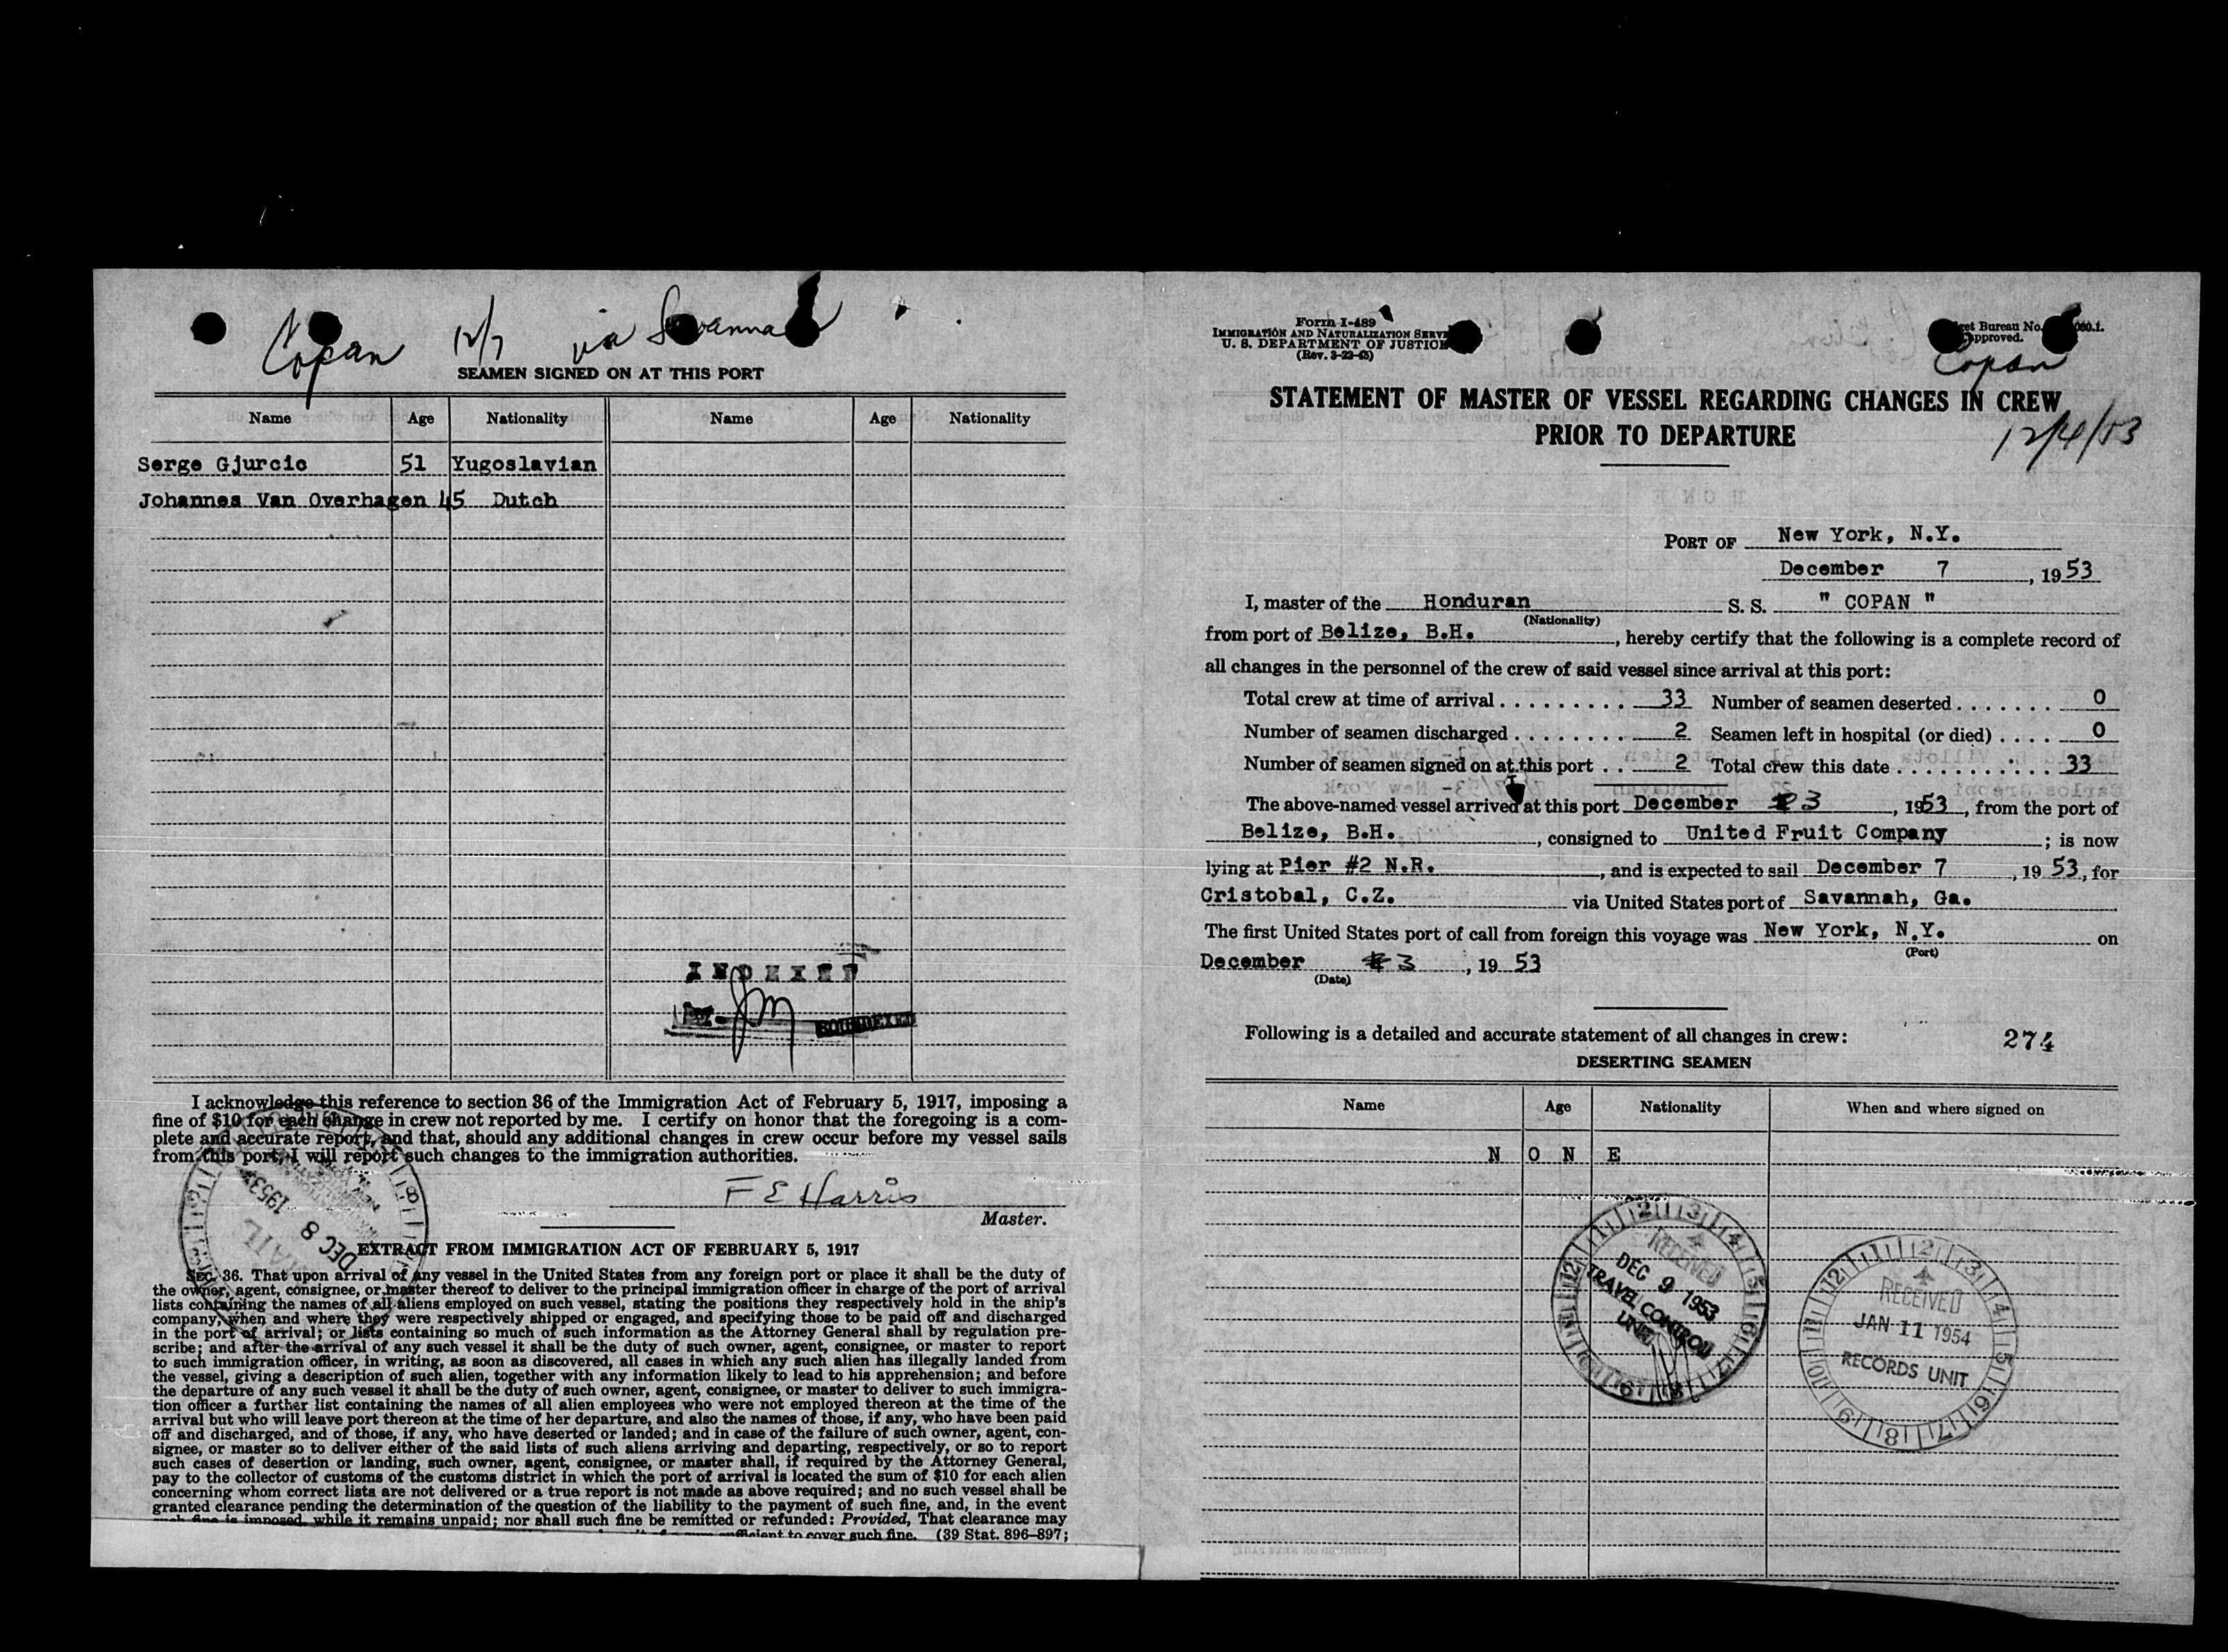 Copan 12/7 via
SEAMEN SIGNED ON AT THIS PORT
Name Age Nationality Name Age Nationality
Serge Gjurcic 51 Yugoslavian
Johannes Van Overhagen 45 Dutch
INDEXED
I acknowledge this reference to section 36 of the Immigration Act of February 5, 1917, imposing a
fine of $10 for each change in crew not reported by me. I certify on honor that the foregoing is a com-
plete and accurate report, and that, should any additional changes in crew occur before my vessel sails
from this port, I will report such changes to the immigration authorities.
F E Harris
Master.
DEC 8 1953
MAIL
EXTRACT FROM IMMIGRATION ACT OF FEBRUARY 5, 1917
SEC. 36. That upon arrival of any vessel in the United States from any foreign port or place it shall be the duty of
the owner, agent, consignee, or master thereof to deliver to the principal immigration officer in charge of the port of arrival
lists containing the names of all aliens employed on such vessel, stating the positions they respectively hold in the ship's
company, when and where they were respectively shipped or engaged, and specifying those to be paid off and discharged
in the port of arrival; or lists containing so much of such information as the Attorney General shall by regulation pre-
scribe; and after the arrival of any such vessel it shall be the duty of such owner, agent, consignee, or master to report
to such immigration officer, in writing, as soon as discovered, all cases in which any such alien has illegally landed from
the vessel, giving a description of such alien, together with any information likely to lead to his apprehension; and before
the departure of any such vessel it shall be the duty of such owner, agent, consignee, or master to deliver to such immigra-
tion officer a further list containing the names of all alien employees who were not employed thereon at the time of the
arrival but who will leave port thereon at the time of her departure, and also the names of those, if any, who have been paid
off and discharged, and of those, if any, who have deserted or landed; and in case of the failure of such owner, agent, con-
signee, or master so to deliver either of the said lists of such aliens arriving and departing, respectively, or so to report
such cases of desertion or landing, such owner, agent, consignee, or master shall, if required by the Attorney General,
pay to the collector of customs of the customs district in which the port of arrival is located the sum of $10 for each alien
concerning whom correct lists are not delivered or a true report is not made as above required; and no such vessel shall be
granted clearance pending the determination of the question of the liability to the payment of such fine, and, in the event
such fine is imposed, while it remains unpaid; nor shall such fine be remitted or refunded: Provided, That clearance may
sufficient to cover such fine. (39 Stat. 896-897;
Form I-489
IMMIGRATION AND NATURALIZATION
U. S. DEPARTMENT OF JUSTICE
(Rev. 3-22-45)
Bureau No.
Approved.
Copan
12/4/53
STATEMENT OF MASTER OF VESSEL REGARDING CHANGES IN CREW
PRIOR TO DEPARTURE
PORT OF New York, N.Y.
December 7, 1953
I, master of the Honduran S. S. " COPAN "
(Nationality)
from port of Belize, B.H., hereby certify that the following is a complete record of
all changes in the personnel of the crew of said vessel since arrival at this port:
Total crew at time of arrival . . . . . . . . . 33 Number of seamen deserted . . . . . . . 0
Number of seamen discharged . . . . . . . . 2 Seamen left in hospital (or died) . . . . 0
Number of seamen signed on at this port . . 2 Total crew this date . . . . . . . . . . . . 33
The above-named vessel arrived at this port December 3, 1953, from the port of
Belize, B.H., consigned to United Fruit Company; is now
lying at Pier #2 N.R., and is expected to sail December 7, 1953, for
Cristobal, C.Z. via United States port of Savannah, Ga.
The first United States port of call from foreign this voyage was New York, N.Y. on
(Port)
December 3, 1953
(Date)
Following is a detailed and accurate statement of all changes in crew: 274
DESERTING SEAMEN
Name Age Nationality When and where signed on
N O N E
RECEIVED
DEC 9 1953
TRAVEL CONTROL
UNIT
RECEIVED
JAN 11 1954
RECORDS UNIT